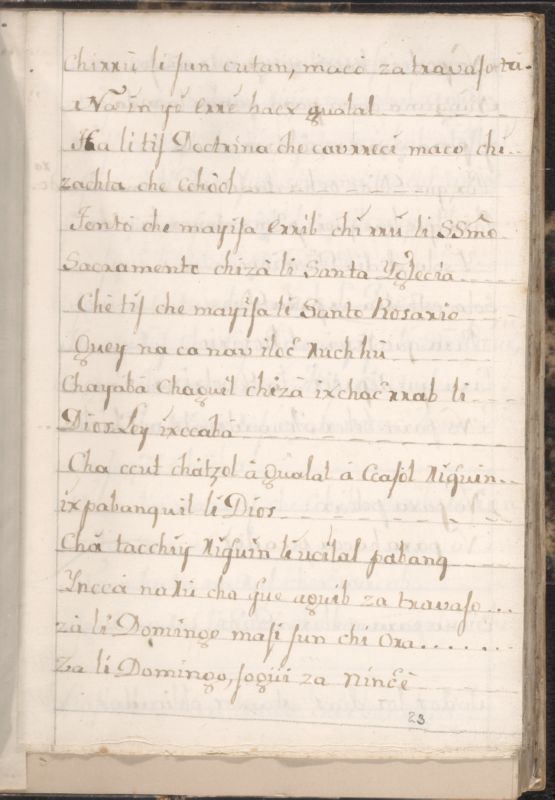 Chirrũ li jun cutan, maco za travaso tú.
Nain yó erré haex gualal
Ha li tij Doctrina che cavrreci maco chi
zachta che Cchooh
Jonto che mayija errib chi rrú li SSmo
Sacramento chizá li Santa Yglecia
Che tij che mayija li Santo Rosario
Guey na ca nav iloc xuchhú
Chayabá Chaguil chizá ixchac rrab li
Dios Ley ixcaba
Cha ccut chatzol á gualal á Ccajol xiguin
ixpabanquil li Dios
Chá tacchiy xiguin li ucilal pabanq
Yncca naxú cha gue aguib za travaso ...
zá li Domingo masi jun chi Ora.......
Za li Domingo, jogui za nincé
23